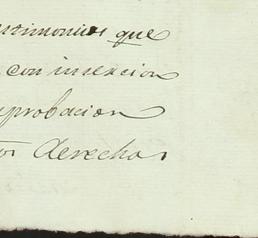 stimonios que
con insercion
aprobacion
derecho.